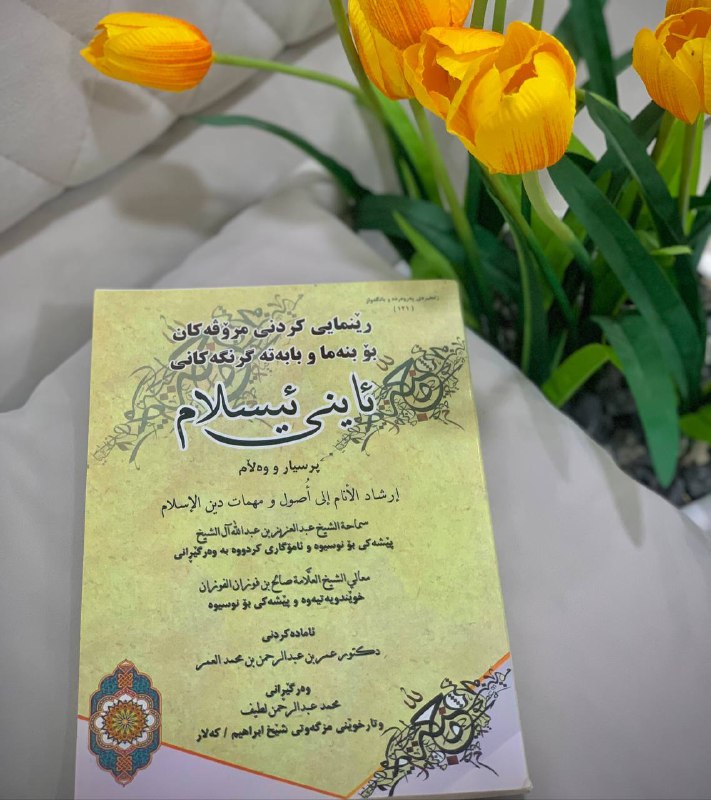 زنجیرەی پەروەردە و بانگەواز
(١٢١)
رێنمایی کردنی مرۆڤەکان
بۆ بنەما و بابەتە گرنگەکانی
ئاینی ئیسلام
پرسیار و وەڵام
إرشاد الأنام إلى أُصول و مهمات دين الإسلام
سماحة الشيخ عبدالعزيز بن عبدالله آل الشيخ
پێشەکی بۆ نوسیوە و ئامۆژگاری کردووە بە وەرگێڕانی
معالي الشيخ العلَّامة صالح بن فوزان الفوزان
خوێندویەتیەوە و پێشەکی بۆ نوسیوە
ئامادەکردنی
دکتور عمر بن عبدالرحمن بن محمد العمر
وەرگێڕانی
محمد عبدالرحمن لطیف
وتارخوێنی مزگەوتی شێخ ابراهیم / کەلار